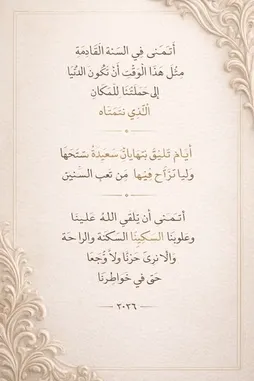 أَتَمَنى فِي السَنة القَادِمَةِ
مِثْلَ هَذَا الْوَقْتِ أَنْ تَكُونَ الدُّنْيَا
إلى حَمَلَتنَا لِلْمَكَانِ
الَّذي نتمَتَاه
أيَام تَليقَ بَنِهَايَاتٍ سَعِيدَةُ سَتَحَهَا
وليا نَرَّاح فِيْهَا مِن تعب السنين
أَتمَنى أن يُلقي اللهُ عَلَينا
وعَلوبنَا السكِينَا السكنَة والراحَة
وَالْانرى حَزنًا ولاَ وَجَعًا
حَقَ في خَوَاطِرنَا
٢٠٢٦